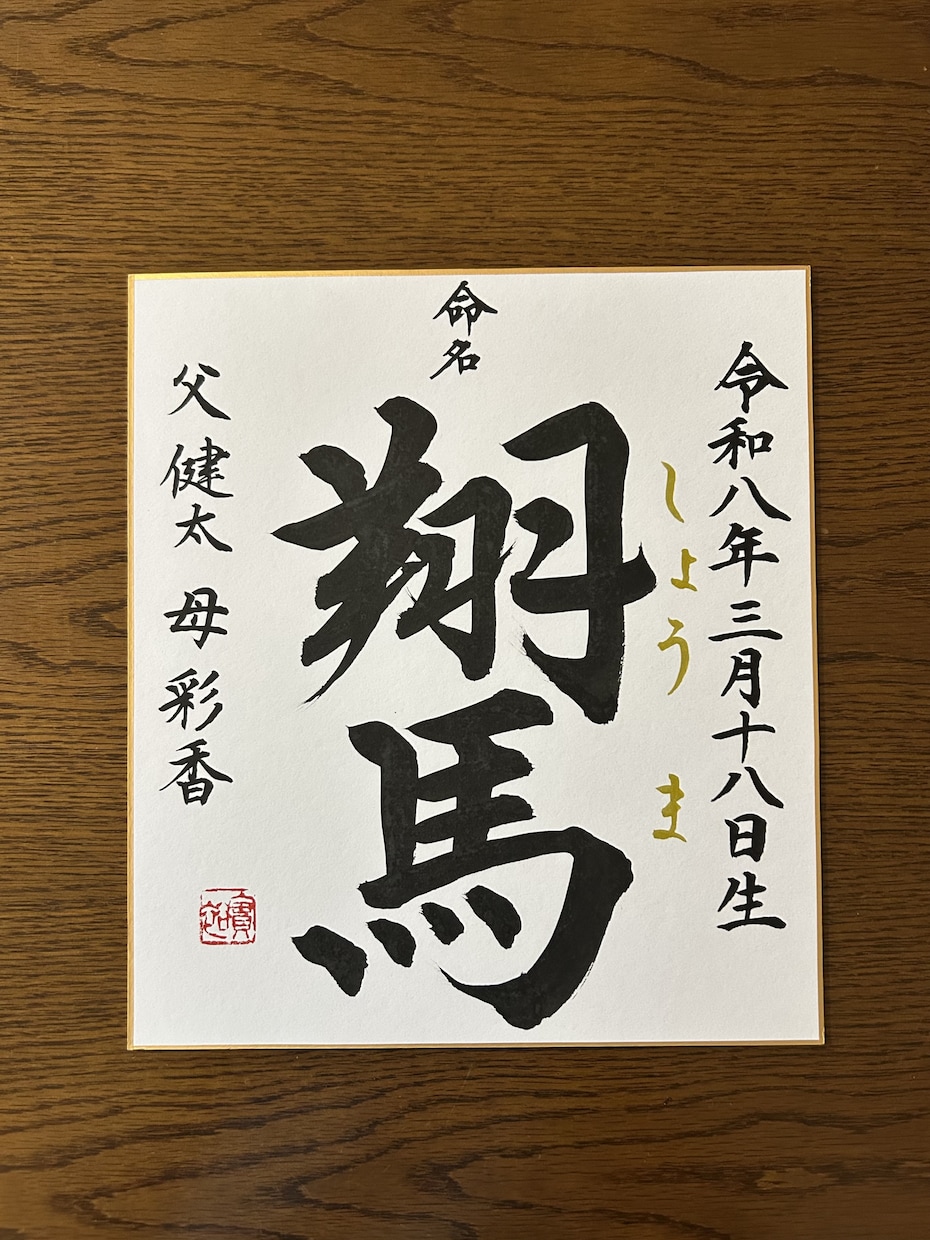 令和八年三月十八日生
しょうま
命名
翔馬
父 健太 母 彩香